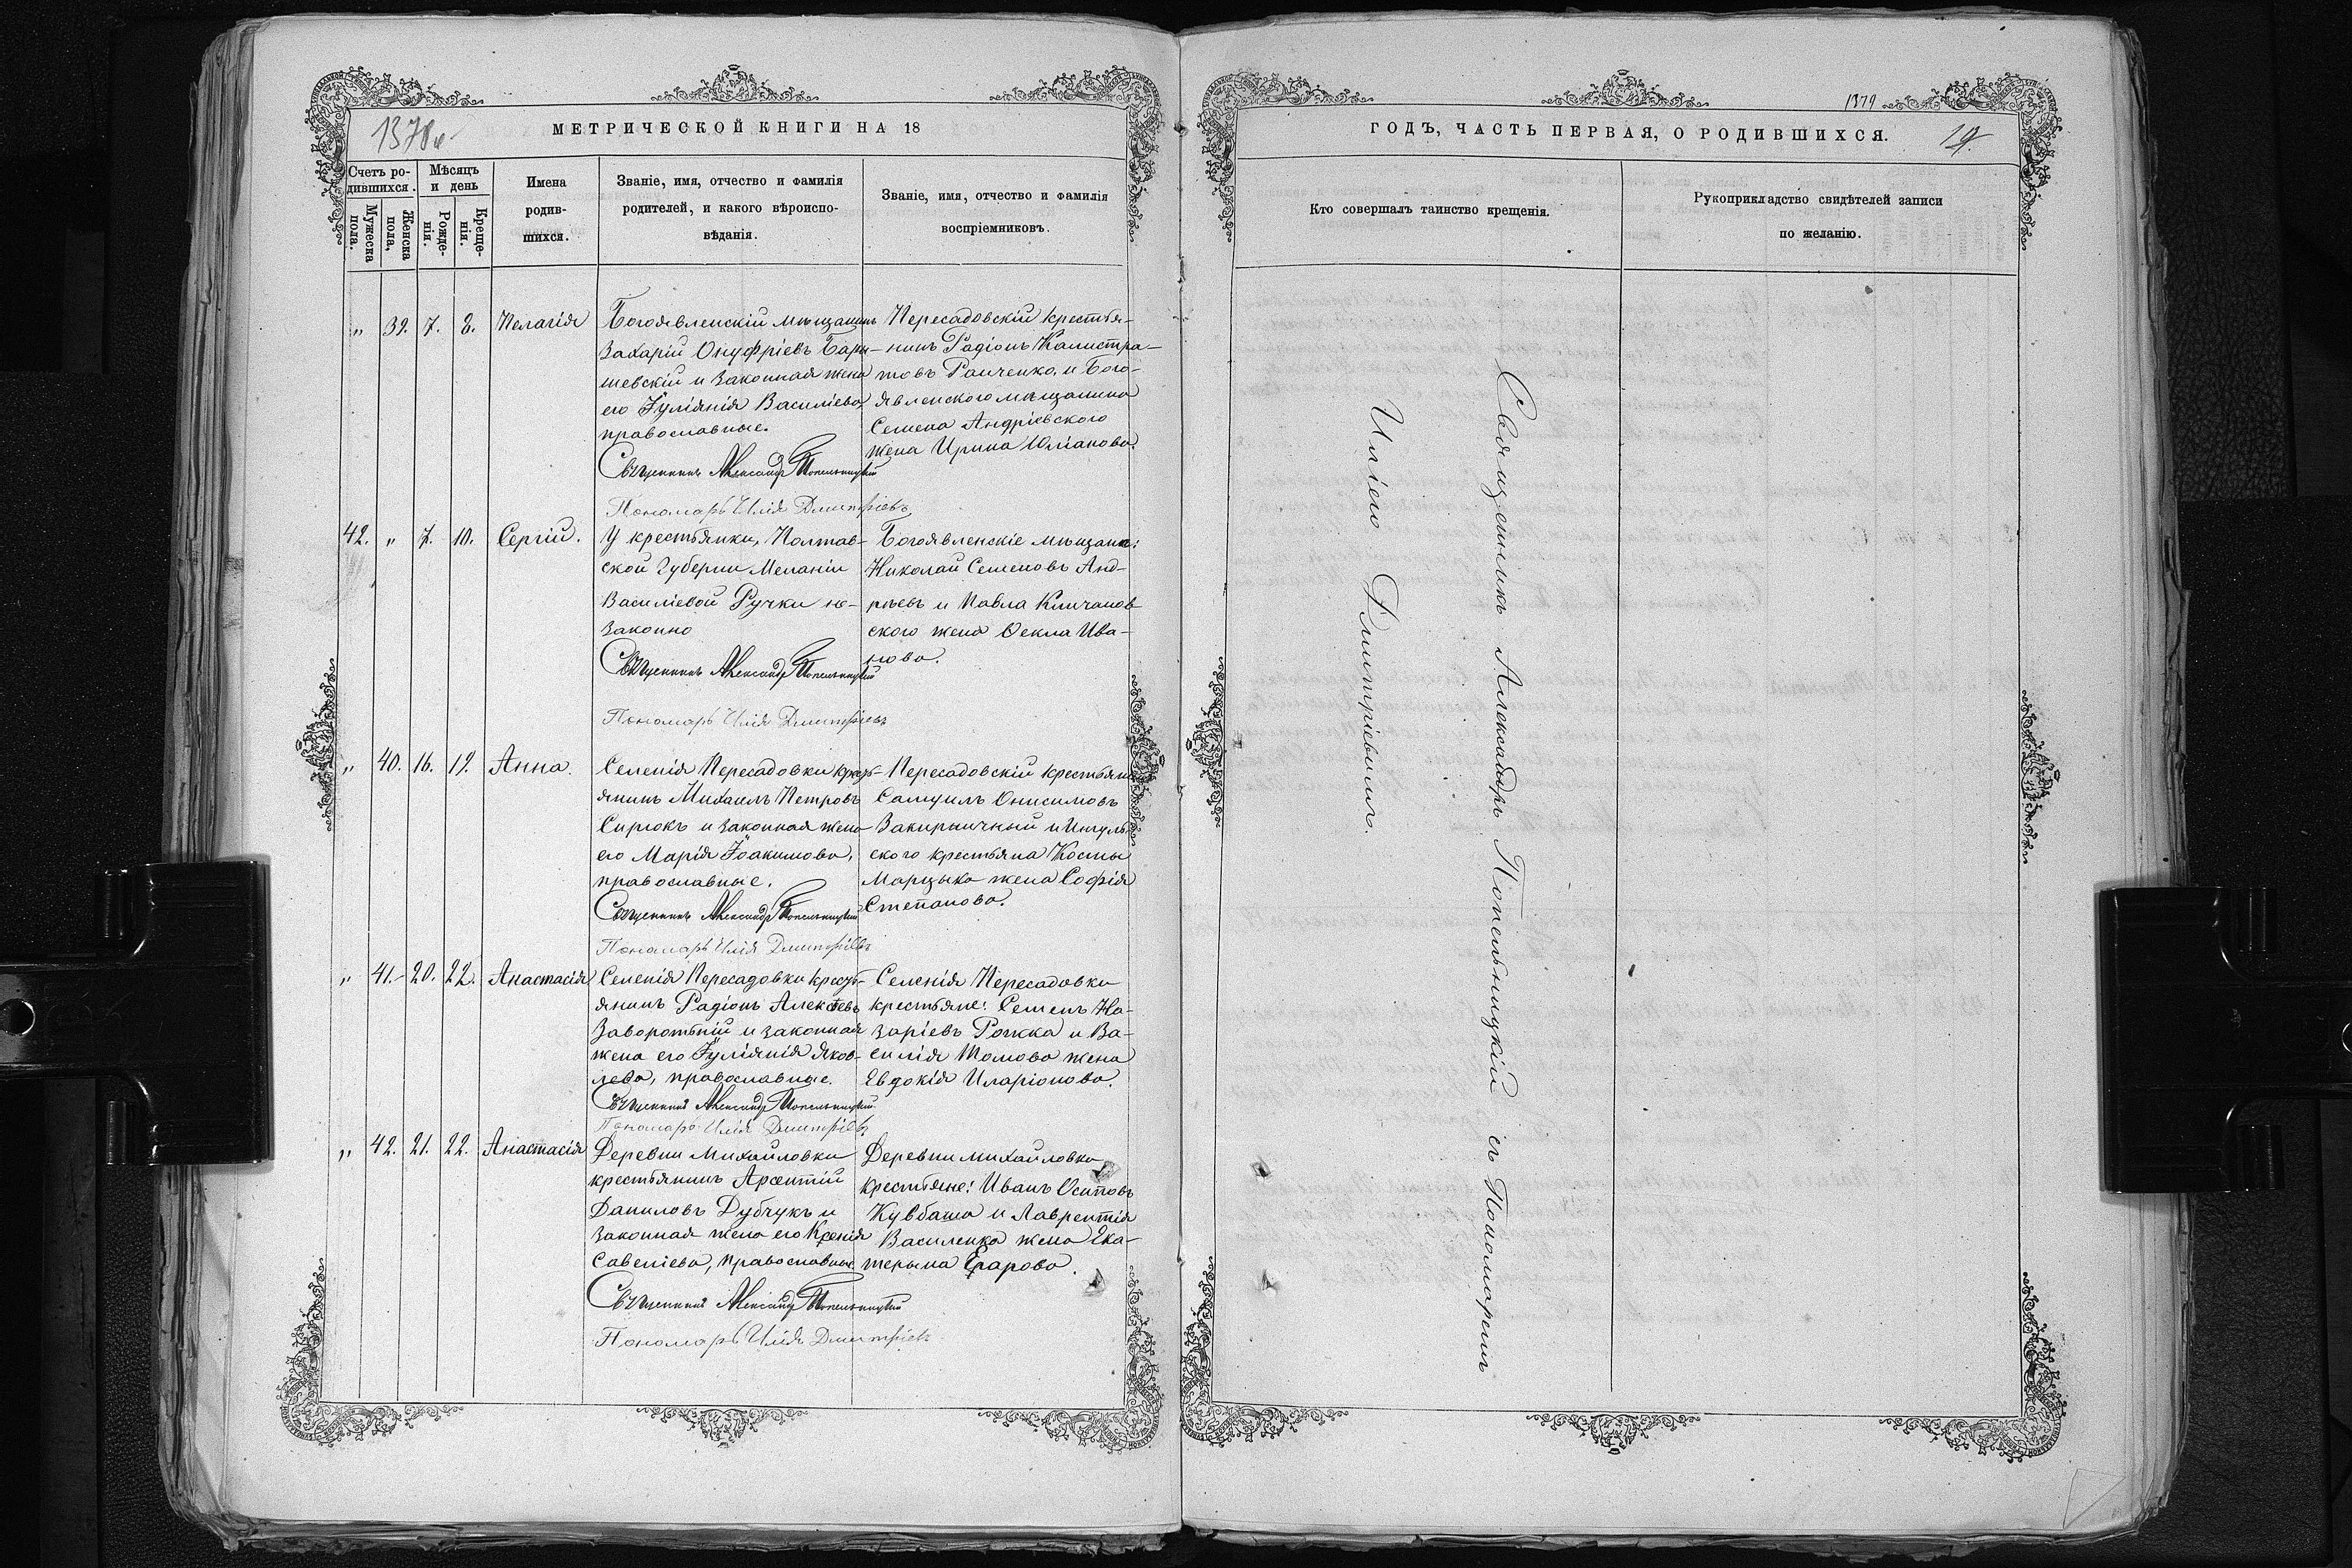 1378 об
МЕТРИЧЕСКОЙ КНИГИ НА 18
Счетъ ро-
дившихся.
Мужеска пола.
Женска пола,
Мѣсяцъ
и день
Рожде-
нія.
Креще-
нія.
Имена
родив-
шихся.
Званіе, имя, отчество и фамилія
родителей, и какого вѣроиспо-
вѣданія.
Званіе, имя, отчество и фамилія
воспріемниковъ.
„ 39. 7. 8. Пелагія
Богоявленскій мѣщанинъ
Захарій Онуфріевъ Бары-
шевскій и законная жена
его Іуліянія Василіева,
православные.
Священникъ Александръ Попельницкій
Пономарь Илія Дмитріевъ
Пересадовскій крестья-
нинъ Радіонъ Калистра-
товъ Ранченко, и Бого-
явленского мѣщанина
Семена Андріевского
жена Ирина Юліанова.
42. „ 7. 10. Сергій.
У крестьянки, Полтав-
ской Губерніи Меланіи
Василіевой Ручки не-
законно
Священникъ Александръ Попельницкій
Пономарь Илія Дмитріевъ
Богоявленскіе мѣщане:
Николай Семеновъ Анд-
ріевъ и Павла Кличанов-
ского жена Ѳекла Ива-
нова.
„ 40. 16. 19. Анна.
Селенія Пересадовки крест-
янинъ Михаилъ Петровъ
Сирюкъ и законная жена
его Марія Іоакимова,
православные.
Священникъ Александръ Попельницкій
Пономарь Илія Дмитріевъ
Пересадовскій крестьянинъ
Самуилъ Онисимовъ
Закирничный и Ингуль-
ского крестьяна Космы
Марцыка жена Софія
Степанова.
„ 41. 20. 22. Анастасія
Селенія Пересадовки крест-
янинъ Радіонъ Алексѣевъ
Заворотній и законная
жена его Іуліянія Яков-
лева, православные.
Священникъ Александръ Попельницкій
Пономарь Илія Дмитріевъ
Селенія Пересадовки
крестьяне: Семенъ На-
заріевъ Рожка и Ва-
силія Шомова жена
Евдокія Иларіонова.
„ 42. 21. 22. Анастасія
Деревни Михайловки
крестьянинъ Арсентій
Даниловъ Дубчукъ и
законная жена его Ксенія
Савеліева, православные
Священникъ Александръ Попельницкій
Пономарь Илія Дмитріевъ
Деревни Михайловки
крестьяне: Иванъ Осиповъ
Кувбаша и Лаврентія
Василенка жена Ека-
терына
1379
ГОДЪ, ЧАСТЬ ПЕРВАЯ, О РОДИВШИХСЯ.
19.
Кто совершалъ таинство крещенія.
Рукоприкладство свидѣтелей записи
по желанію.
Священникъ Александръ Попельницкій съ Пономаремъ
Иліею Дмитріевымъ.